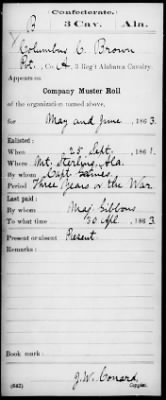 Confederate.
B 3 Cav. Ala.
Columbus C. Brown
Pvt., Co. A, 3 Reg't Alabama Cavalry.
Appears on
Company Muster Roll
of the organization named above,
for May and June, 1863.
Enlisted:
When 25 Sept., 1861.
Where Mt. Sterling, Ala.
By whom Capt. Gaines
Period Three Years or the War
Last paid:
By whom Maj. Gibbons
To what time 30 Apl., 1863.
Present or absent Present
Remarks:
Book mark:
J. W. Conard
(642) Copyist.